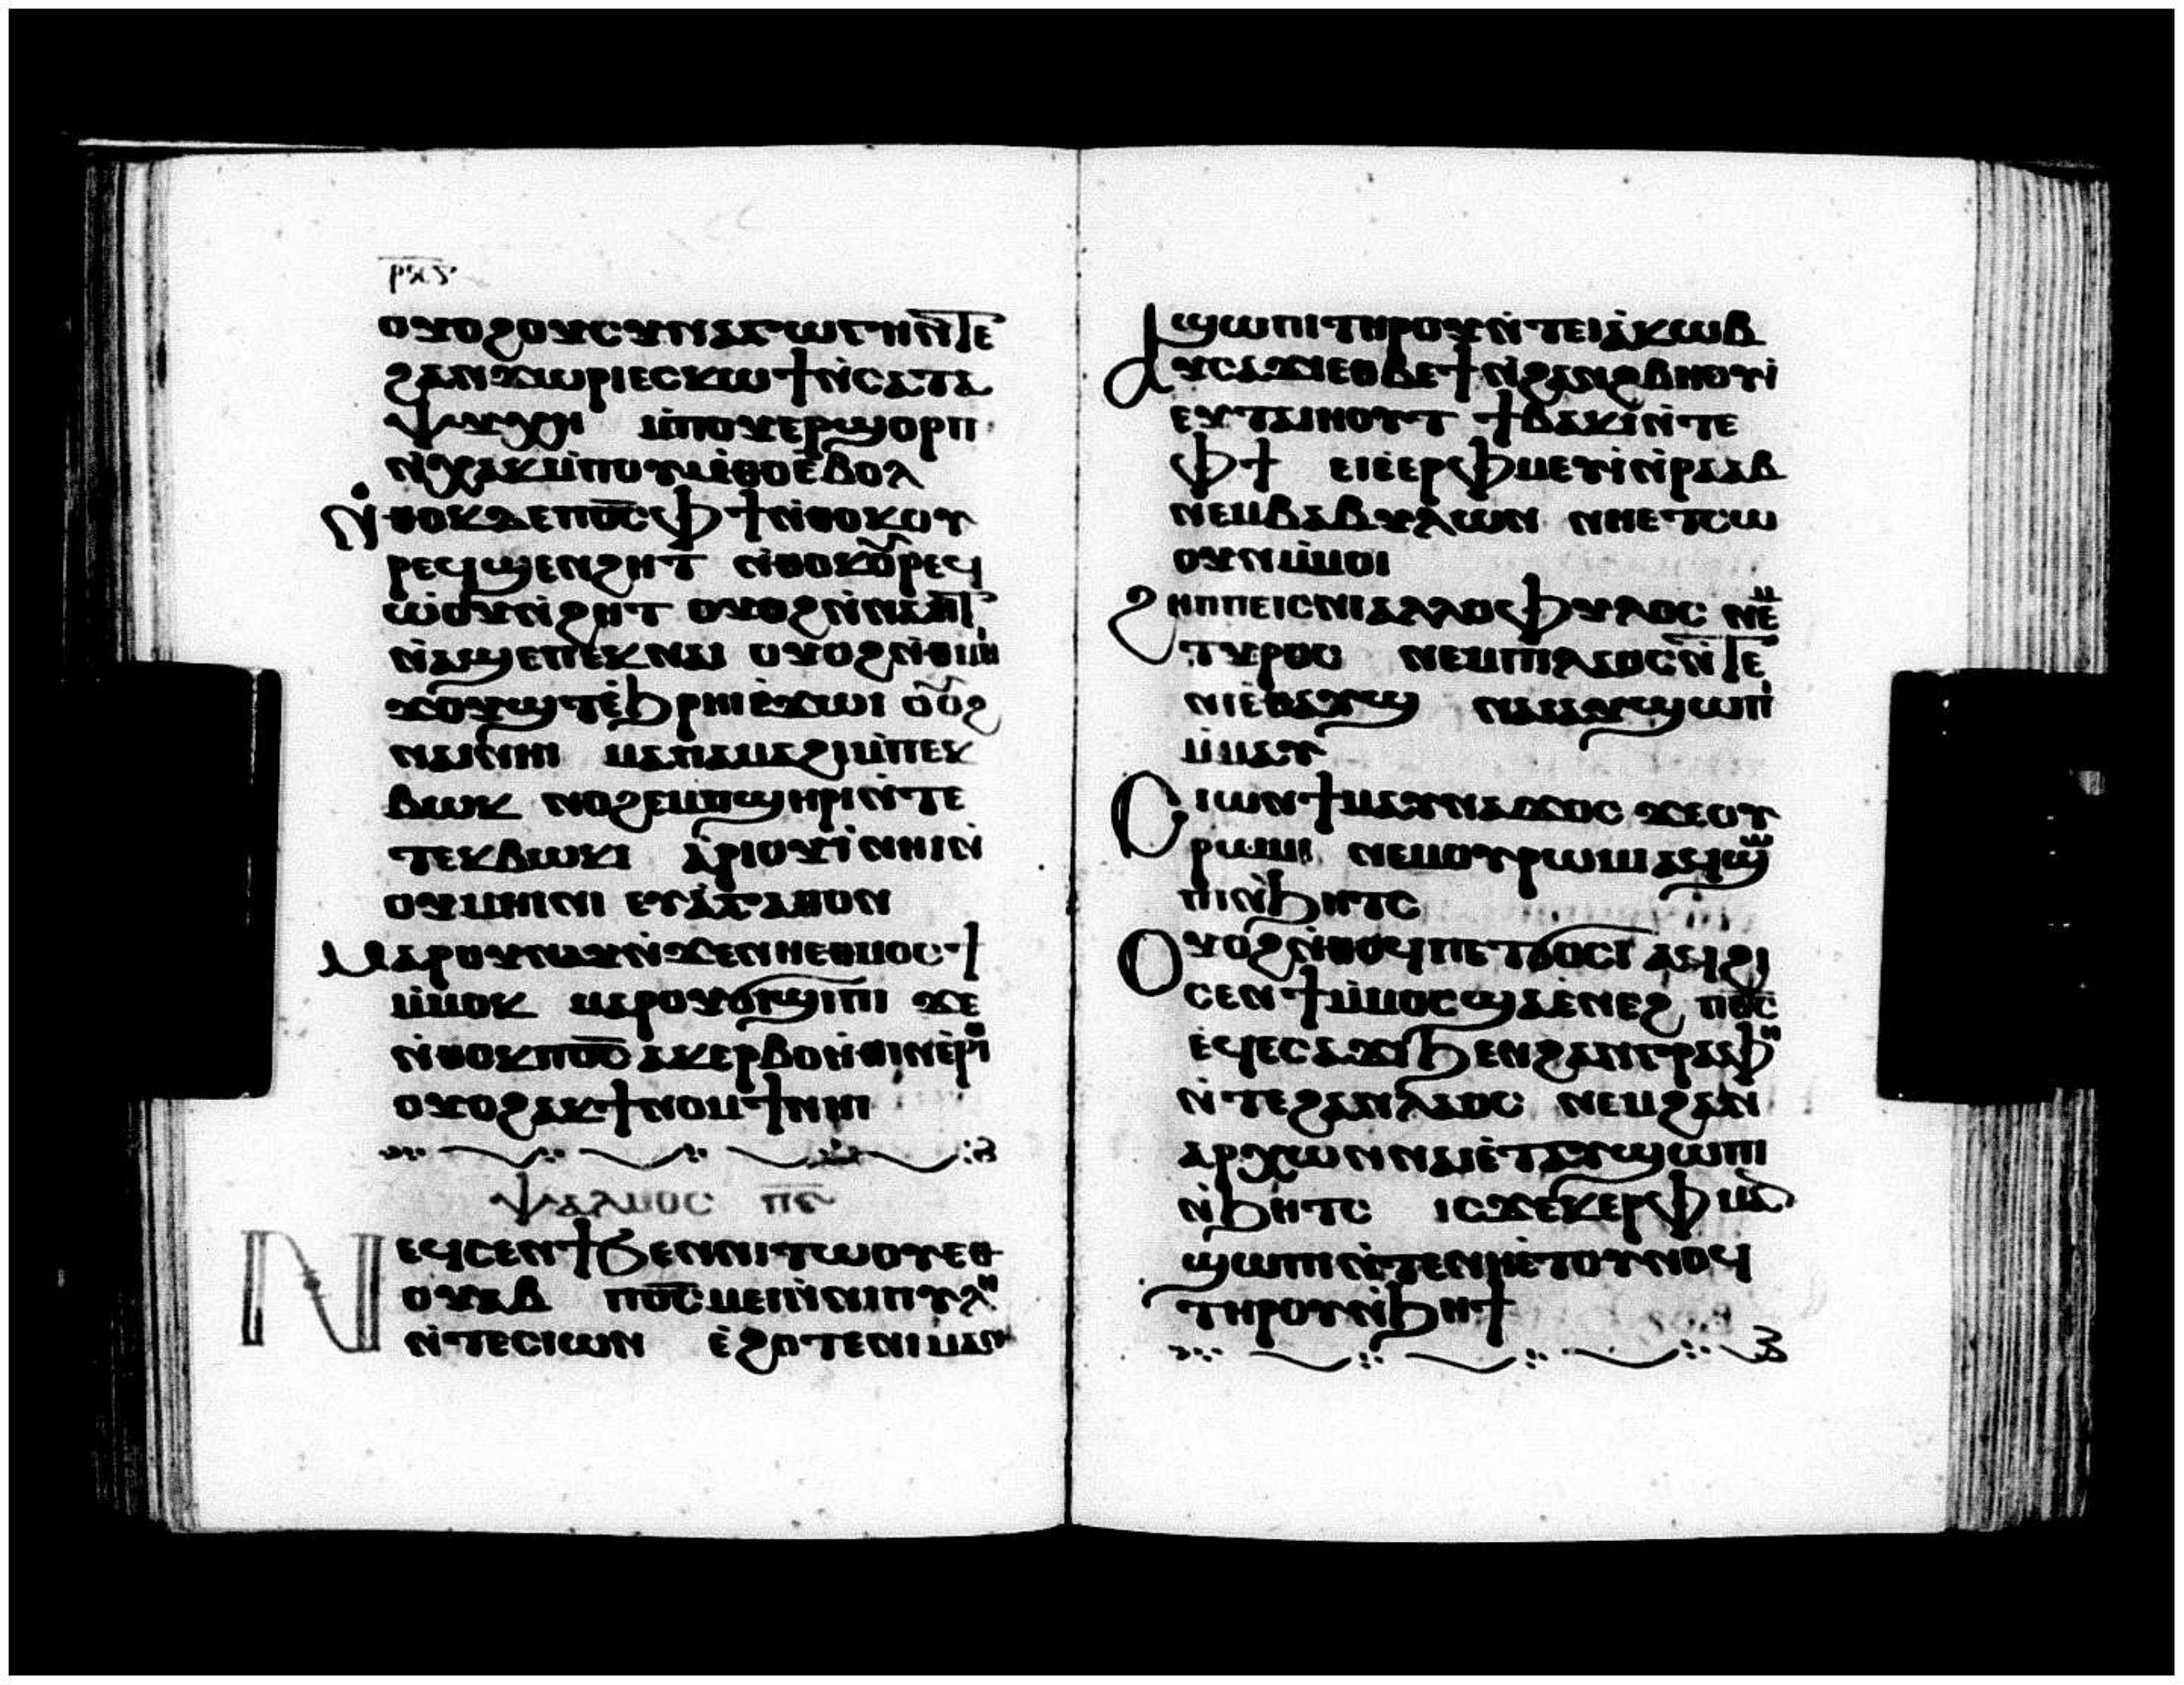 ⲣⲕⲋ
ⲟⲩⲟϩⲟⲩⲥⲩⲛⲁⲅⲱⲅⲏⲛ̄ⲧⲉ
ϩⲁⲛϫⲱⲣⲓⲉⲥⲕⲱϯⲛ̀ⲥⲁⲧⲁ
ⲯⲩⲭⲏ ⲙ̀ⲡⲟⲩⲉⲣϣⲟⲣⲡ
ⲛ̀ⲭⲁⲕⲙ̀ⲡⲟⲩⲙ̀ⲑⲟⲉ̀ⲃⲟⲗ
ⲛ̀ⲑⲟⲕⲇⲉⲡⲟ̅ⲥ̅ⲫϯⲛ̀ⲑⲟⲕⲟⲩ
ⲣⲉϥϣⲉⲛϩⲏⲧ ⲛ̀ⲑⲟⲕⲟⲩⲣⲉϥ
ⲱ̀ⲟⲩⲛ̀ϩⲏⲧ ⲟⲩⲟϩⲛ̀ⲛⲁⲏⲧ
ⲛ̀ⲁϣⲉⲡⲉⲕⲛⲁⲓ ⲟⲩⲟϩⲛ̀ⲑⲙⲏⲓ
ϫⲟⲩϣⲧⲉ̀ϧⲣⲏⲓⲉ̀ϫⲱⲓ ⲟⲩⲟϩ
ⲛⲁⲓⲛⲏⲓ ⲙⲁⲡⲁⲙⲁϩⲓⲙ̀ⲡⲉⲕ
ⲃⲱⲕ ⲛⲟϩⲉⲙⲡϣⲏⲣⲓⲛ̀ⲧⲉ
ⲧⲉⲕⲃⲱⲕⲓ ⲁ̀ⲣⲓⲟⲩⲓ̀ⲛⲏⲓⲛ̀
ⲟⲩⲙⲏⲓⲛⲓ ⲉⲩⲁ̀ⲅⲁⲑⲟⲛ
ⲙⲁⲣⲟⲩⲛⲁⲩⲛ̀ϫⲉⲛⲏⲉⲑⲙⲟⲥϯ
ⲙ̀ⲙⲟⲕ ⲙⲁⲣⲟⲩϭⲓϣⲓⲡⲓ ϫⲉ
ⲛ̀ⲑⲟⲕⲡⲟ̅ⲥ̅ ⲁⲕⲉⲣⲃⲟⲏ̀ⲑⲓⲛⲉ̀ⲣⲟⲓ
ⲟⲩⲟϩⲁⲕϯⲛⲟⲙϯⲛⲏⲓ
ⲯⲁⲗⲙⲟⲥ ⲡ̅ⲋ̅
ⲛⲉϥⲥⲉⲛϯϧⲉⲛⲛⲓⲧⲱⲟⲩⲉⲑ
ⲟⲩⲁⲃ ⲡⲟ̅ⲥ̅ⲙⲉⲓⲛ̀ⲛⲓⲡⲩⲗⲏ
ⲛ̀ⲧⲉⲥⲓⲱⲛ ⲉ̀ϩⲟⲧⲉⲛⲓⲙⲁⲛ
ϣⲱⲡⲓⲧⲏⲣⲟⲩⲛ̀ⲧⲉⲓⲁ̀ⲕⲱⲃ
ⲁⲩⲥⲁϫⲓⲉⲑⲃⲉϯⲛ̀ϩⲁⲛϩⲃⲏⲟⲩⲓ̀
ⲉⲩⲧⲁⲓⲏⲟⲩⲧ ϯⲃⲁⲕⲓⲛ̀ⲧⲉ
ⲫϯ ⲉⲓⲉ̀ⲉⲣⲫⲙⲉⲩⲓ̀ⲛ̀ⲣⲁⲁⲃ
ⲛⲉⲙⲃⲁⲃⲩⲗⲱⲛ ⲛⲏⲉⲧⲥⲱ
ⲟⲩⲛⲙ̀ⲙⲟⲓ
ϩⲏⲡⲡⲉⲓⲥⲛⲓⲁⲗⲗⲟⲫⲩⲗⲟⲥ ⲛⲉⲙ
ⲧⲩⲣⲟⲥ ⲛⲉⲙⲡⲓⲗⲁⲟⲥⲛ̄ⲧⲉ
ⲛⲓⲉ̀ⲑⲁⲩϣ ⲛⲁⲓⲁⲩϣⲱⲡⲓ
ⲙ̀ⲙⲁⲩ
ⲥⲓⲱⲛϯⲙⲁⲩⲛⲁϫⲟⲥ ϫⲉⲟⲩ
ⲣⲱⲙⲓ ⲛⲉⲙⲟⲩⲣⲱⲙⲓⲁϥϣⲱ
ⲡⲓⲛ̀ϧⲏⲧⲥ
ⲟⲩⲟϩⲛ̀ⲑⲟϥⲡⲉⲧϭⲟⲥⲓ ⲁϥϩⲓ
ⲥⲉⲛϯⲙ̀ⲙⲟⲥϣⲁⲉ̀ⲛⲉϩ ⲡⲟ̅ⲥ̅
ⲉϥⲉⲥⲁϫⲓϧⲉⲛϩⲁⲛⲅⲣⲁⲫⲏ
ⲛ̀ⲧⲉϩⲁⲛⲗⲁⲟⲥ ⲛⲉⲙϩⲁⲛ
ⲁⲣⲭⲱⲛⲛⲁⲓⲉ̀ⲧⲁⲩϣⲱⲡⲓ
ⲛ̀ϧⲏⲧⲥ ⲓⲥϫⲉⲕⲉⲣⲫⲙⲁ
ϣⲱⲡⲓⲛ̀ⲧⲉⲛⲏⲉ̀ⲧⲟⲩⲛⲟϥ
ⲧⲏⲣⲟⲩⲛ̀ϧⲏϯ